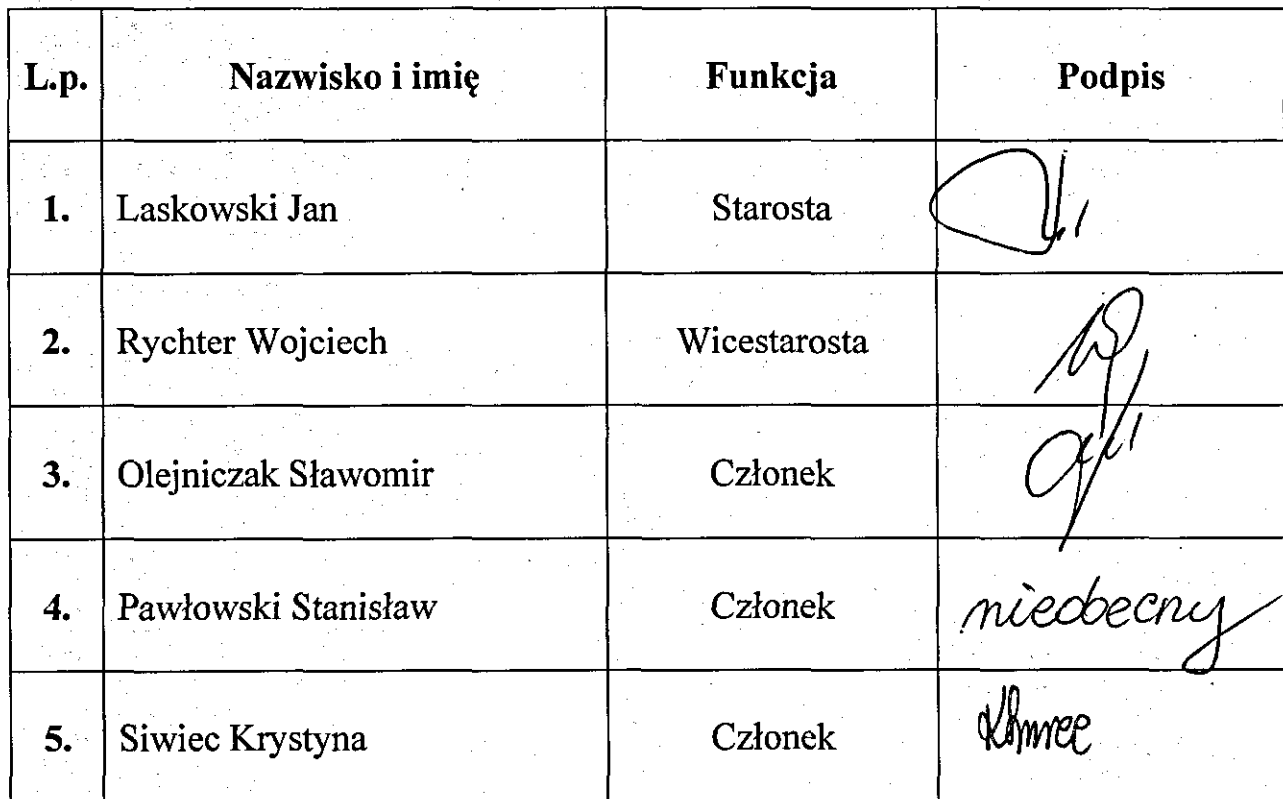 L.p. Nazwisko i imię Funkcja Podpis
1. Laskowski Jan Starosta
2. Rychter Wojciech Wicestarosta
3. Olejniczak Sławomir Członek
4. Pawłowski Stanisław Członek nieobecny
5. Siwiec Krystyna Członek